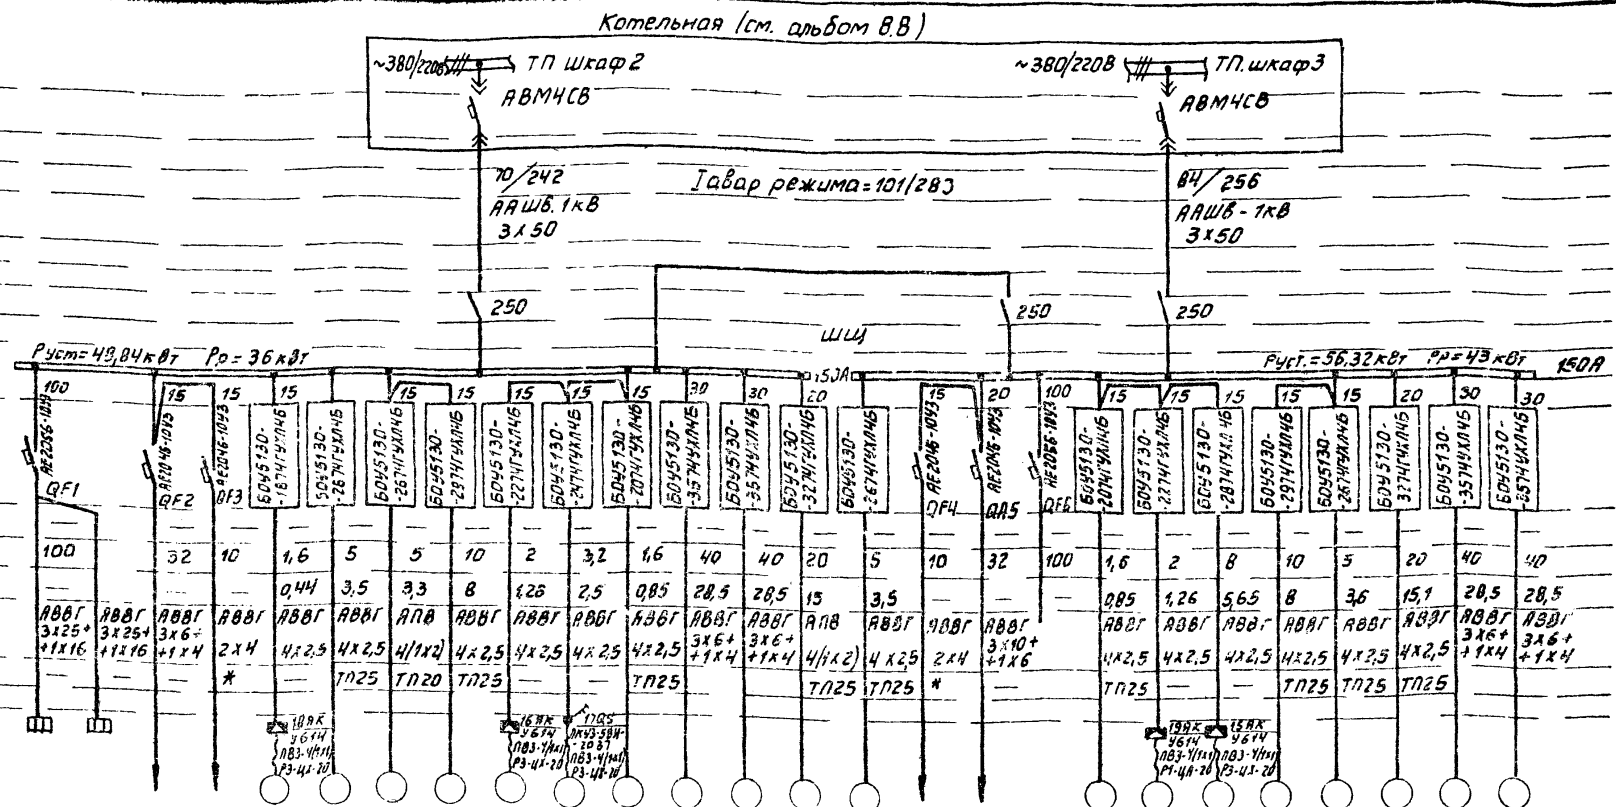 Котельная (см. альбом 8.8)
~380/220В ТП шкаф 2
АВМ4СВ
~380/220В ТП. шкаф 3
АВМ4СВ
70/242
ААШВ. 1кВ
3х50
Iавар режима = 101/283
84/256
ААШВ - 1кВ
3х50
250
250
250
ШЩ
Руст = 49,84 кВт Рр = 36 кВт
Руст. = 56,32 кВт Рр = 43 кВт
150А
150А
100 15 15 15 15 15 15 15 15 30 30 20 15 20 100 15 15 15 15 15 20 30 30
АЕ2046-10У3
АЕ2046-10У3
БОУ5130-
-1874ГУХЛ4Б
БОУ5130-
-2674ГУХЛ4Б
БОУ5130-
-2674ГУХЛ4Б
БОУ5130-
-2974ГУХЛ4Б
БОУ5130-
-2274ГУХЛ4Б
БОУ5130-
-2474ГУХЛ4Б
БОУ5130-
-2074ГУХЛ4Б
БОУ5130-
-3574УХЛ4Б
БОУ5130-
-3574УХЛ4Б
БОУ5130-
-3274ГУХЛ4Б
БОУ5130-
-2674ГУХЛ4Б
АЕ2046-10У3
АЕ2046-10У3
АЕ2056-10У3
БОУ5130-
-2074ГУХЛ4Б
БОУ5130-
-2274ГУХЛ4Б
БОУ5130-
-2874ГУХЛ4Б
БОУ5130-
-2974ГУХЛ4Б
БОУ5130-
-2674ГУХЛ4Б
БОУ5130-
-3274ГУХЛ4Б
БОУ5130-
-3574УХЛ4Б
БОУ5130-
-3574УХЛ4Б
QF1 QF2 QF3 QF4 QA5 QF6
100 32 10 1,6 5 5 10 2 3,2 1,6 40 40 20 5 10 32 100 1,6 2 8 10 5 20 40 40
0,44 3,5 3,3 8 1,26 2,5 0,85 28,5 28,5 15 3,5 0,85 1,26 5,65 8 3,6 15,1 28,5 28,5
АВВГ АВВГ АВВГ АВВГ АВВГ АВВГ АПВ АВВГ АВВГ АВВГ АВВГ АВВГ АВВГ АПВ АВВГ АВВГ АВВГ АВВГ АВВГ АВВГ АВВГ АВВГ АВВГ АВВГ АВВГ
3х25+ 3х25+ 3х6+ 3х6+ 3х6+ 3х10+ 3х6+ 3х6+
+1х16 +1х16 +1х4 2х4 4х2,5 4х2,5 4/1х2) 4х2,5 4х2,5 4х2,5 4х2,5 +1х4 +1х4 4/1х2) 4х2,5 2х4 +1х6 4х2,5 4х2,5 4х2,5 4х2,5 4х2,5 4х2,5 +1х4 +1х4
* ТП25 ТП20 ТП25 ТП25 ТП25 ТП25 * ТП25 ТП25 ТП25 ТП25
18ЯК
У614
ПВ3-4/1х1)
РЗ-ЦХ-20
16ЯК
У614
ПВ3-4/1х1)
РЗ-ЦХ-20
17QS
ПВ3-4/1х1)
РЗ-ЦХ-20
19ЯК
У614
ПВ3-4/1х1)
15ЯК
У614
ПВ3-4/1х1)
РЗ-ЦХ-20